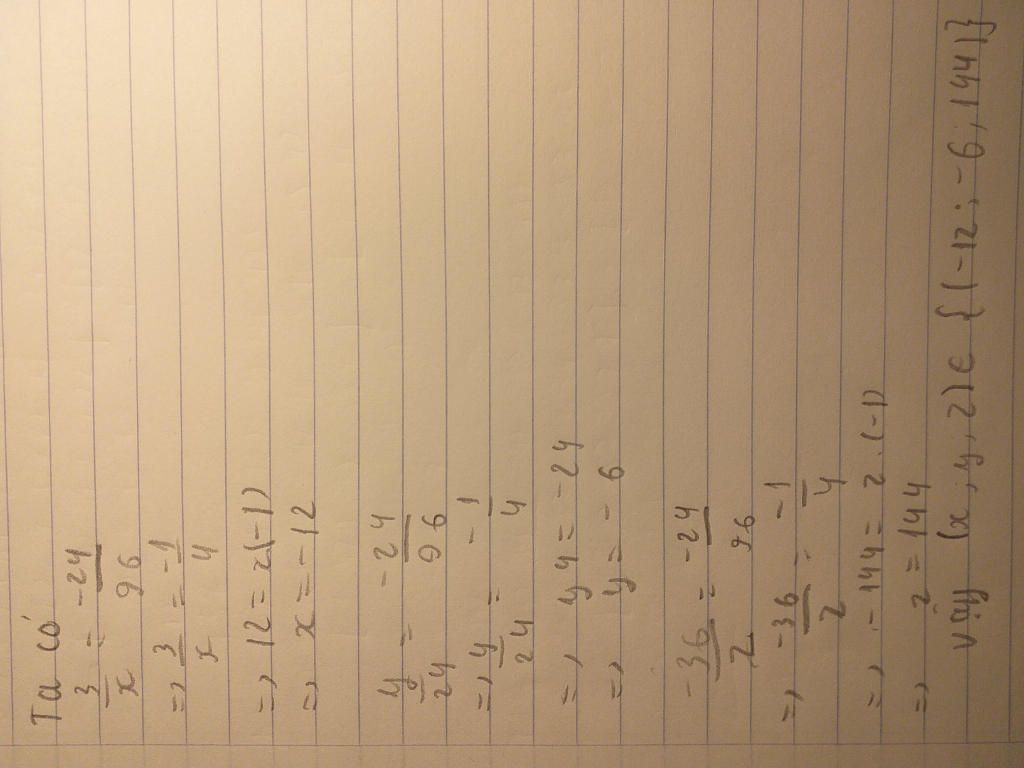 Ta có
3/x = -24/96
=, 3/x = -1/4
=, 12 = x(-1)
=, x = -12
y/24 = -24/96
=, y/24 = -1/4
=, y4 = -24
=, y = -6
-36/z = -24/96
=, -36/z = -1/4
=, -144 = z.(-1)
=, z = 144
vậy (x; y, z) ∈ {(-12; -6; 144)}